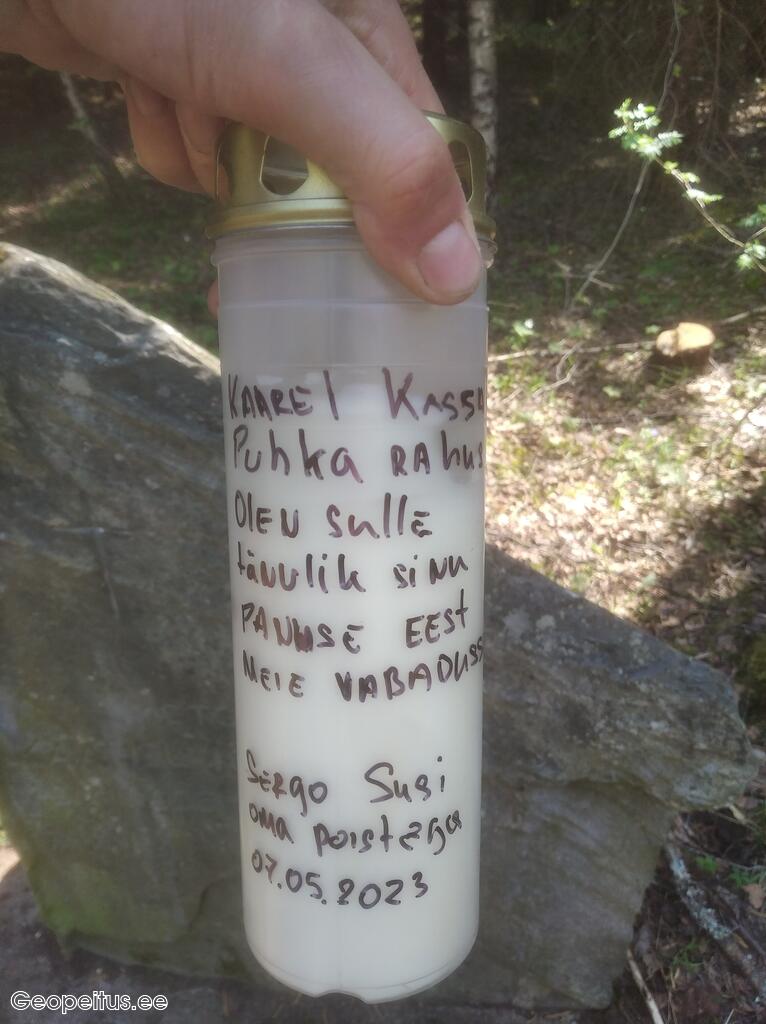 KAAREL KASSK
Puhka RAhus
OlEN SullE
tänulik sinu
PANUSE EEST
MEIE VABADUSS
SERgo Susi
oma poistega
07.05.2023
Geopeitus.ee